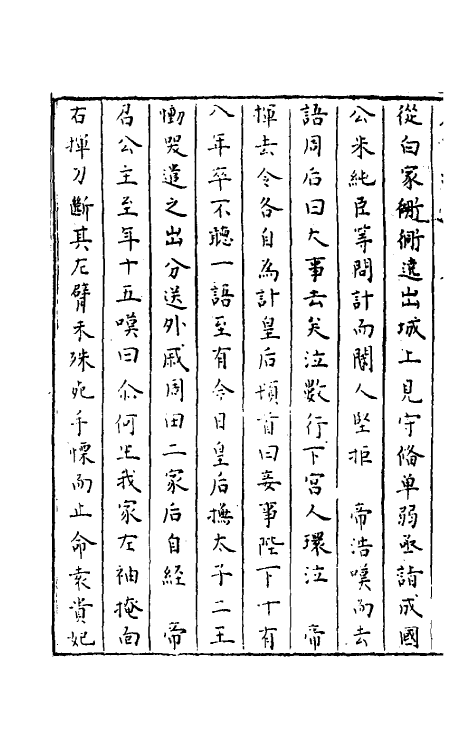 從白家衚衕遶出城上見守備单弱亟詣成國
公朱純臣等問計而閽人堅拒　帝浩嘆而去
語周后曰大事去矣泣數行下宮人環泣　帝
揮去令各自為計皇后頓首曰妾事陛下十有
八年卒不聽一語至有今日皇后撫太子二王
慟哭遣之出分送外戚周田二家后自經　帝
召公主至年十五嘆曰尒何生我家左袖掩面
右揮刀斷其左臂未殊死手慄而止命袁貴妃